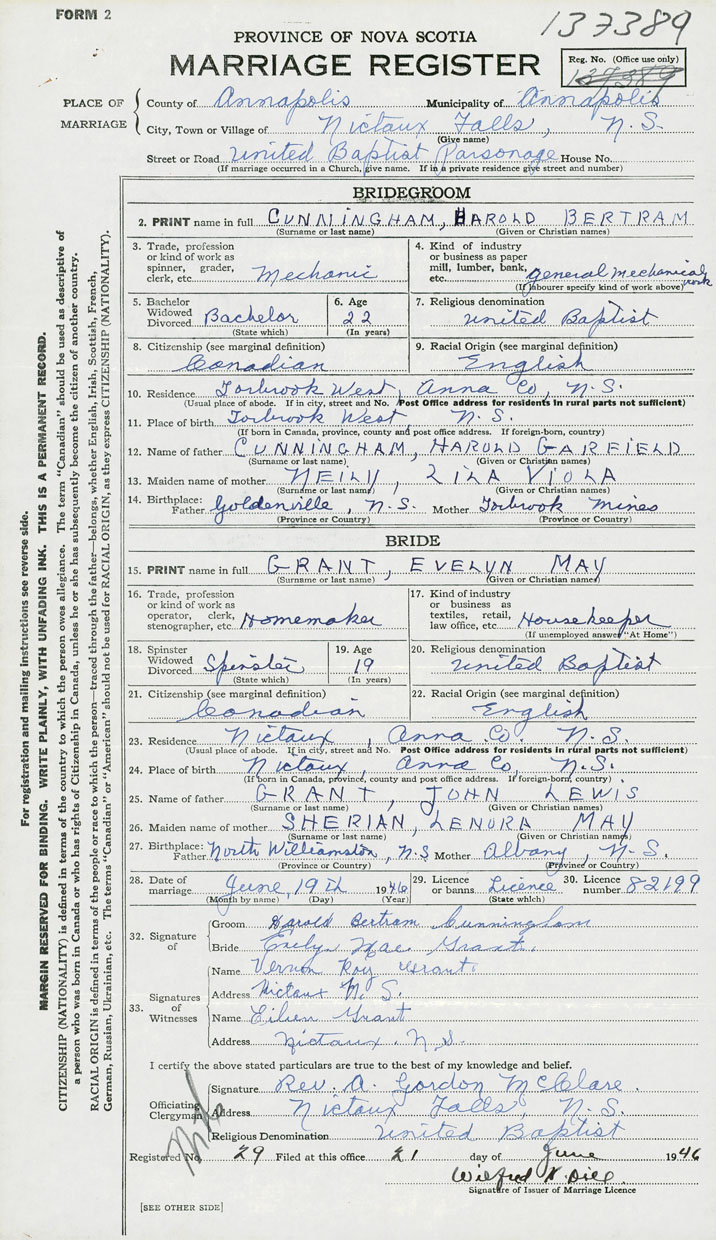 FORM 2
137389
PROVINCE OF NOVA SCOTIA
MARRIAGE REGISTER
Reg. No. (Office use only)
137389
PLACE OF MARRIAGE
County of Annapolis Municipality of Annapolis
City, Town or Village of Nictaux Falls, N.S.
(Give name)
Street or Road United Baptist Parsonage House No.
(If marriage occurred in a Church, give name. If in a private residence give street and number)
BRIDEGROOM
2. PRINT name in full CUNNINGHAM, HAROLD BERTRAM
(Surname or last name) (Given or Christian names)
3. Trade, profession or kind of work as spinner, grader, clerk, etc. Mechanic
4. Kind of industry or business as paper mill, lumber, bank, etc. general mechanical work
(If labourer specify kind of work above)
5. Bachelor Widowed Divorced Bachelor
(State which)
6. Age 22
(In years)
7. Religious denomination United Baptist
8. Citizenship (see marginal definition) Canadian
9. Racial Origin (see marginal definition) English
10. Residence Torbrook West, Anna Co, N.S.
(Usual place of abode. If in city, street and No. Post Office address for residents in rural parts not sufficient)
11. Place of birth Torbrook West, N.S.
(If born in Canada, province, county and post office address. If foreign-born, country)
12. Name of father CUNNINGHAM, HAROLD GARFIELD
(Surname or last name) (Given or Christian names)
13. Maiden name of mother NEILY, LILA VIOLA
(Surname or last name) (Given or Christian names)
14. Birthplace: Father Goldenville, N.S. Mother Torbrook Mines
(Province or Country) (Province or Country)
BRIDE
15. PRINT name in full GRANT, EVELYN MAY
(Surname or last name) (Given or Christian names)
16. Trade, profession or kind of work as operator, clerk, stenographer, etc. Homemaker
17. Kind of industry or business as textiles, retail, law office, etc. Housekeeper
(If unemployed answer "At Home")
18. Spinster Widowed Divorced Spinster
(State which)
19. Age 19
(In years)
20. Religious denomination United Baptist
21. Citizenship (see marginal definition) Canadian
22. Racial Origin (see marginal definition) English
23. Residence Nictaux, Anna Co. N.S.
(Usual place of abode. If in city, street and No. Post Office address for residents in rural parts not sufficient)
24. Place of birth Nictaux Anna Co, N.S.
(If born in Canada, province, county and post office address. If foreign-born, country)
25. Name of father GRANT, JOHN LEWIS
(Surname or last name) (Given or Christian names)
26. Maiden name of mother SHERIAN, LENORA MAY
(Surname or last name) (Given or Christian names)
27. Birthplace: Father North Williamston, N.S Mother Albany, N.S.
(Province or Country) (Province or Country)
28. Date of marriage June, 19th 1946
(Month by name) (Day) (Year)
29. Licence or banns Licence
(State which)
30. Licence number 82199
32. Signature of
Groom Harold Bertram Cunningham
Bride Evelyn Mae Grant.
33. Signatures of Witnesses
Name Vernon Roy Grant.
Address Nictaux N.S.
Name Eileen Grant
Address Nictaux. N.S.
I certify the above stated particulars are true to the best of my knowledge and belief.
Officiating Clergyman
Signature Rev. A. Gordon McClare.
Address Nictaux Falls, N.S.
Religious Denomination United Baptist
Registered No. 29 Filed at this office 21 day of June 1946
Wilfred N. Dill
Signature of Issuer of Marriage Licence
[SEE OTHER SIDE]
For registration and mailing instructions see reverse side.
MARGIN RESERVED FOR BINDING. WRITE PLAINLY, WITH UNFADING INK. THIS IS A PERMANENT RECORD.
CITIZENSHIP (NATIONALITY) is defined in terms of the country to which the person owes allegiance. The term "Canadian" should be used as descriptive of
a person who was born in Canada or who has rights of Citizenship in Canada, unless he or she has subsequently become the citizen of another country.
RACIAL ORIGIN is defined in terms of the people or race to which the person—traced through the father—belongs, whether English, Irish, Scottish, French,
German, Russian, Ukrainian, etc. The terms "Canadian" or "American" should not be used for RACIAL ORIGIN, as they express CITIZENSHIP (NATIONALITY).